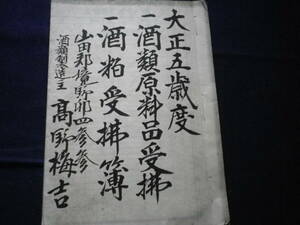 大正五歳度
一酒類原料品受拂
一酒粕受拂簿
山田郡境野村四参参
酒類製造主 高野梅吉